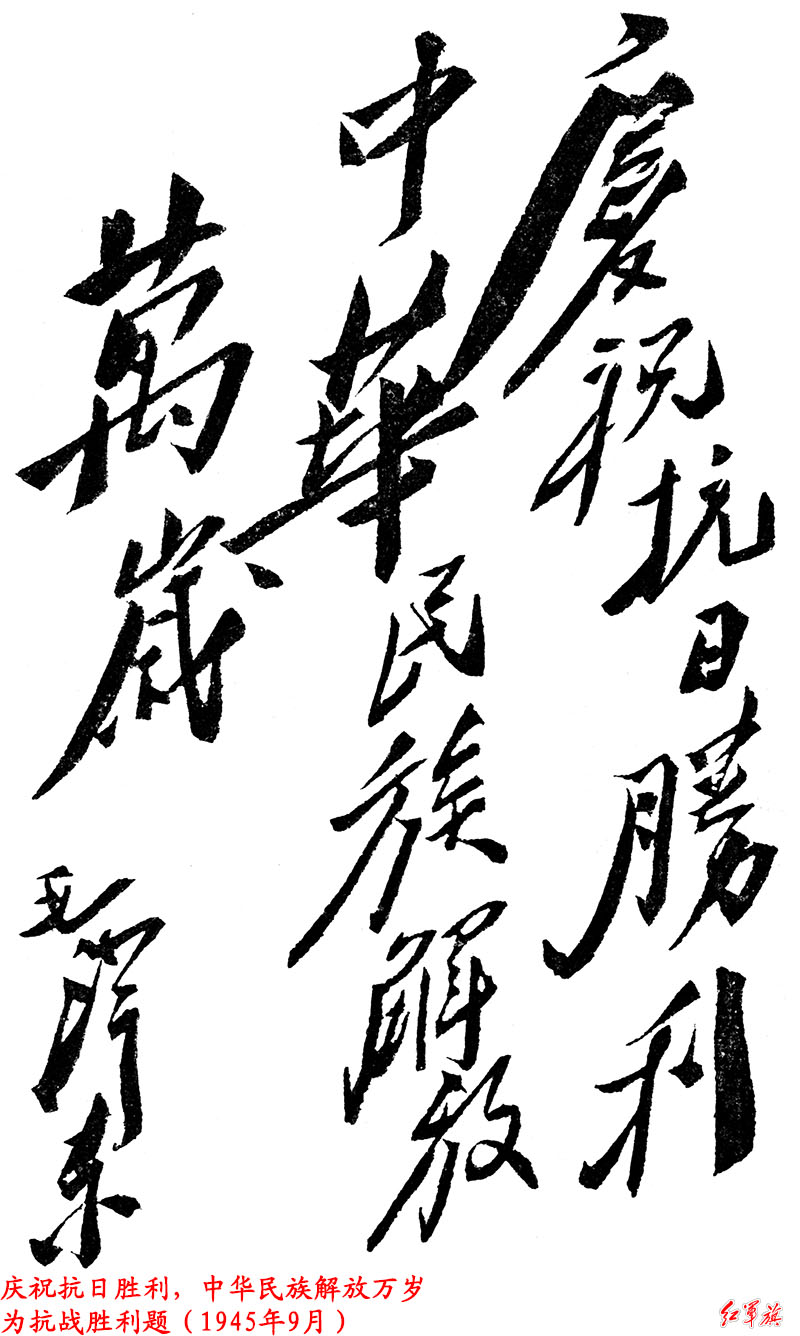 慶祝抗日勝利
中華民族解放
萬歲
毛澤东
庆祝抗日胜利，中华民族解放万岁
为抗战胜利题（1945年9月）
红军旗